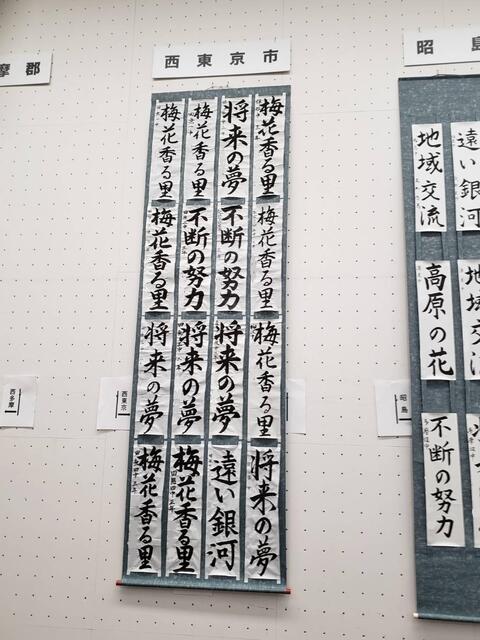 摩郡
西東京市
昭島
梅花香る里
将来の夢
梅花香る里
梅花香る里
梅花香る里
不断の努力
不断の努力
梅花香る里
梅花香る里
将来の夢
将来の夢
将来の夢
将来の夢
遠い銀河
梅花香る里
梅花香る里
遠い銀河
地域交流
高原の花
不断の努力
西多摩
西東京
昭島